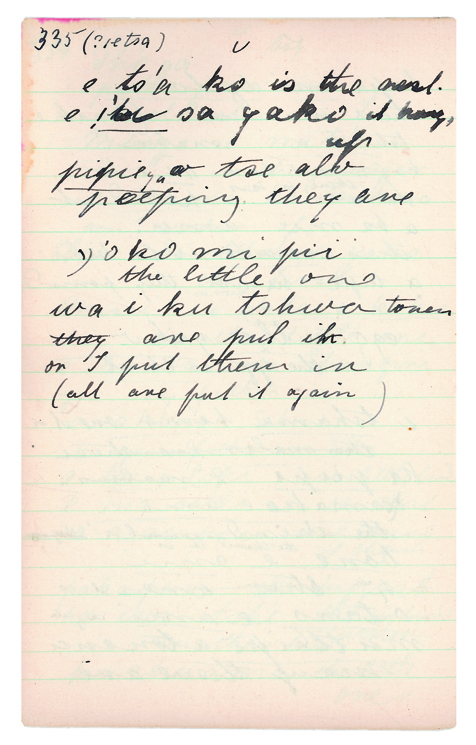 335 (?retsa)
e tsa ko is the nest.
e !ku sa yako it hangs
up.
pipie,, tse alo
peeping they are
)'oko mi pii
the little one
wa i ku tshwa
they are put in.
or I put them in
(all are put it again)